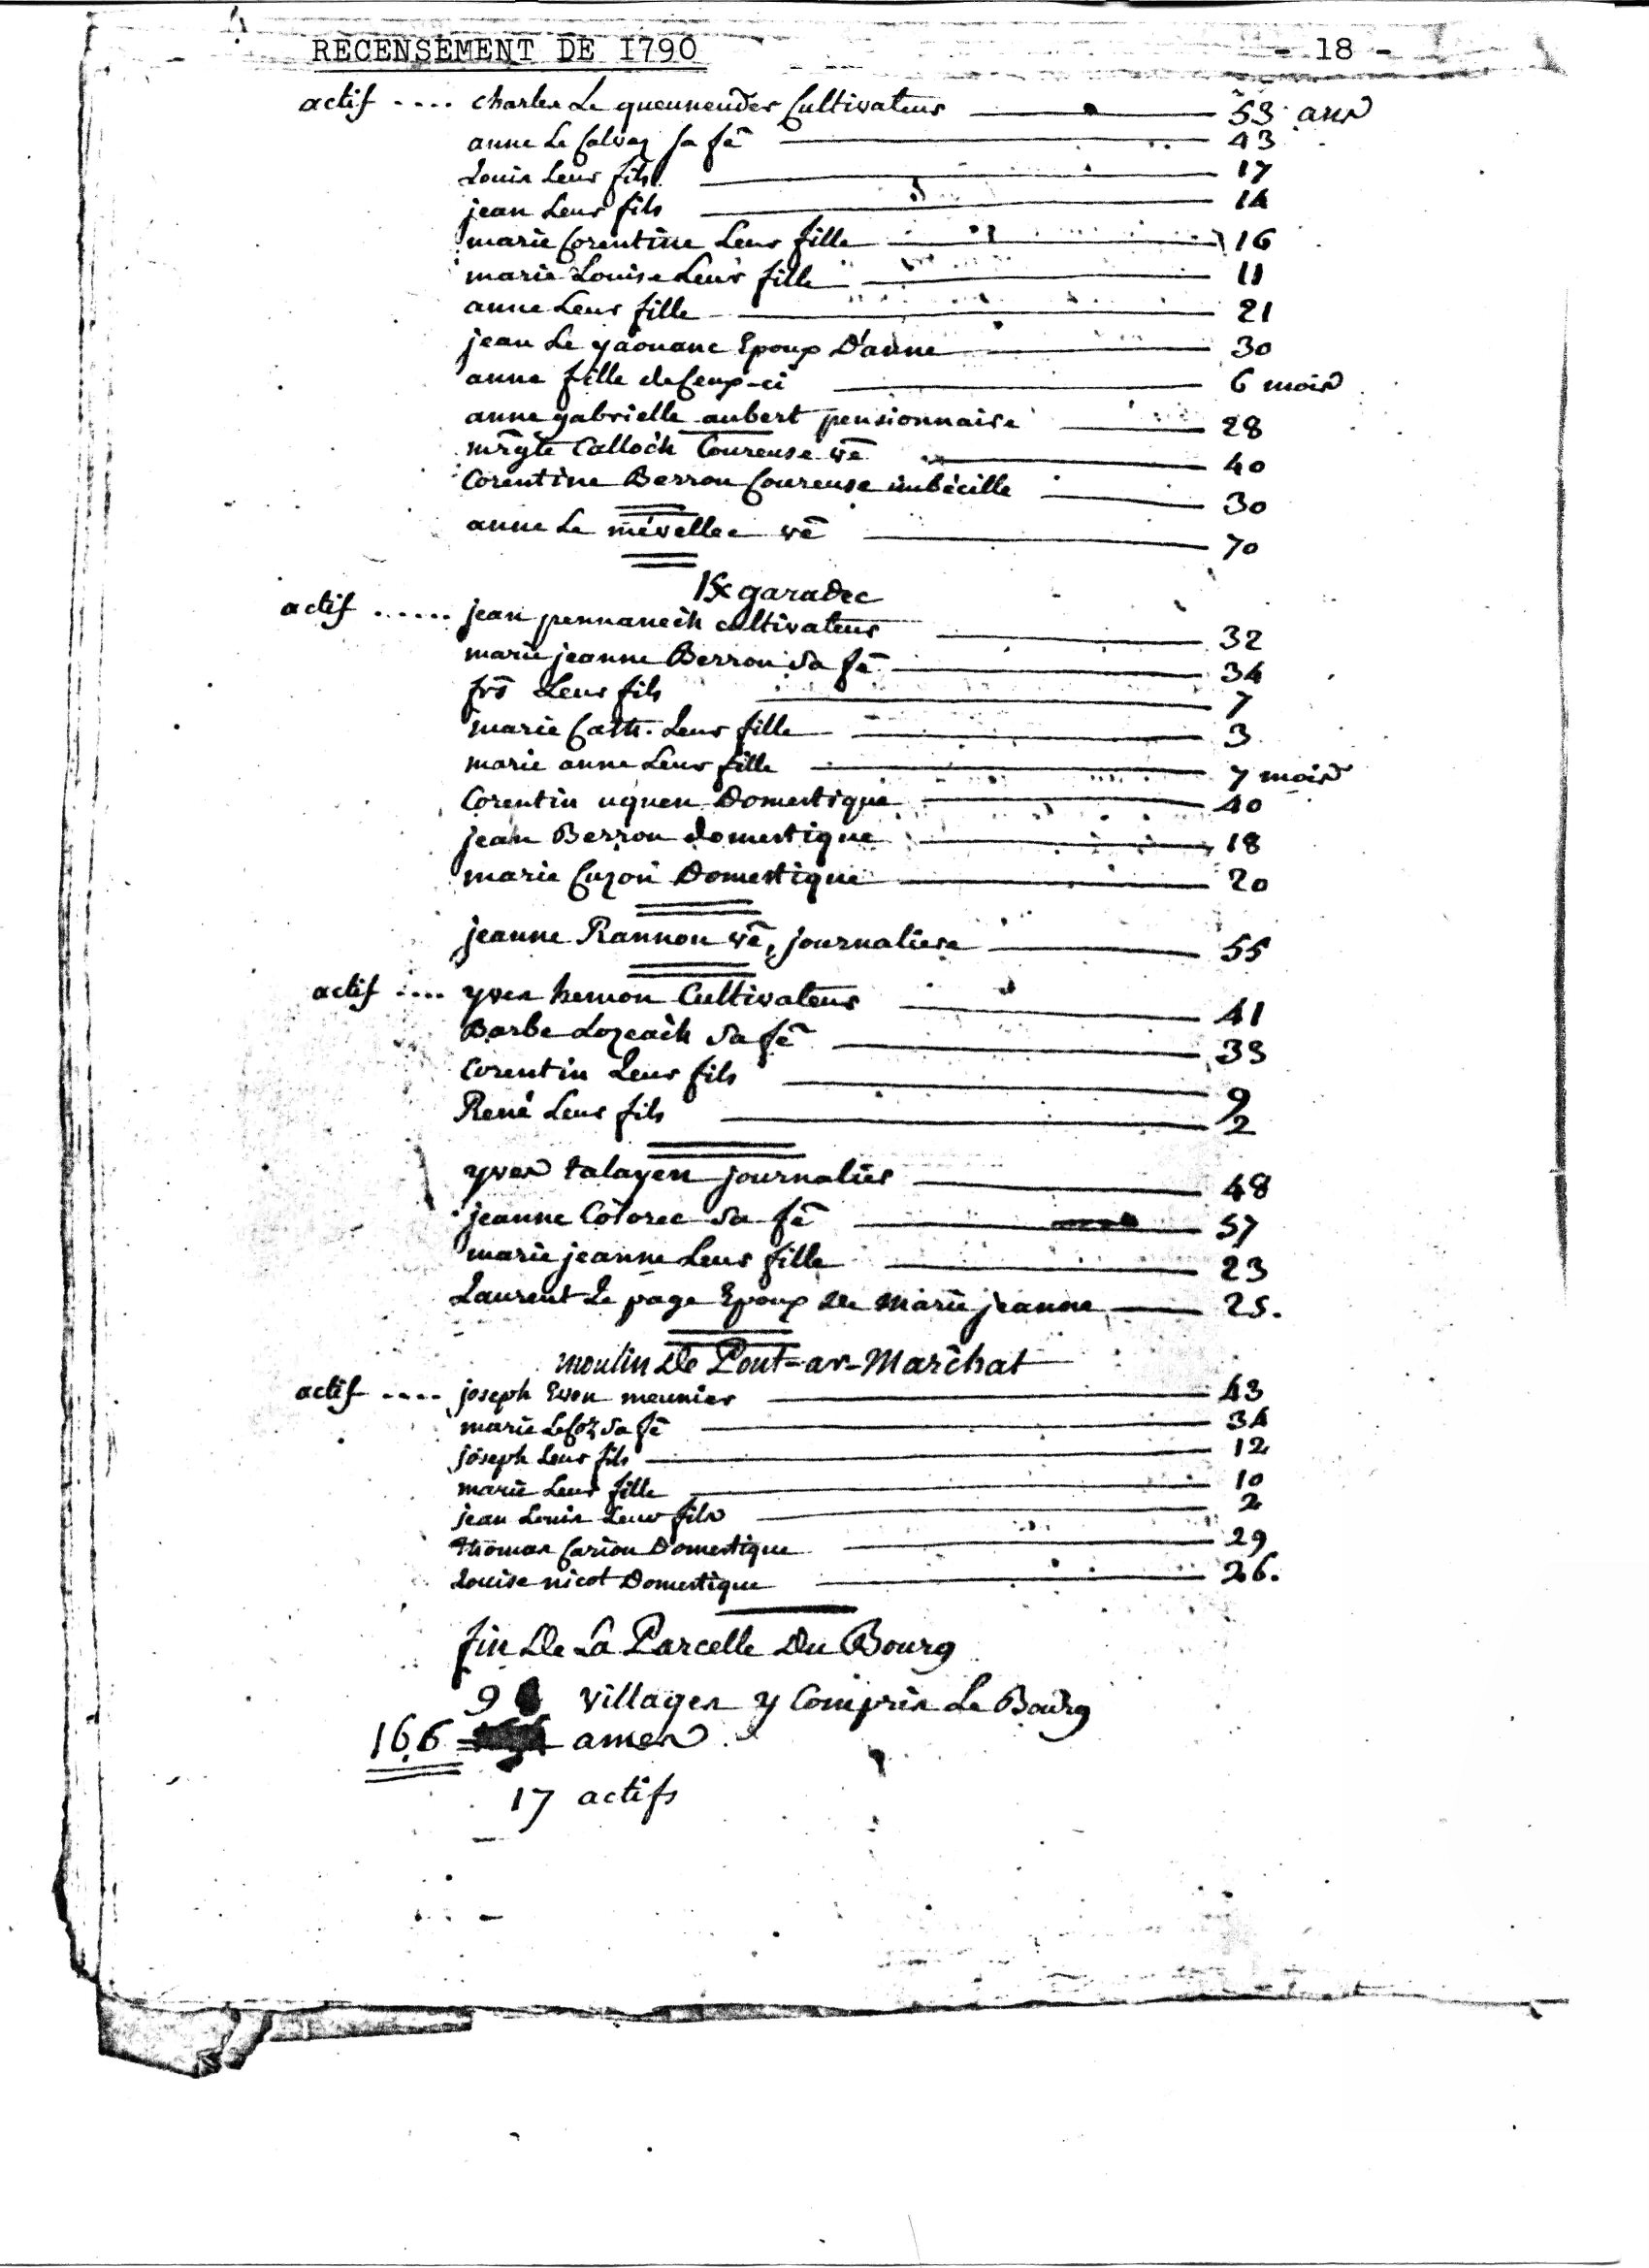 RECENSEMENT DE I790 - 18 -
actif .... charles Le queunender Cultivateur 53 ans
anne Le Calvez sa fē 43
Louis Leur fils 17
jean Leur fils 14
marie Corentine Leur fille 16
marie Louise Leur fille 11
anne Leur fille 21
jean Le yaouanc Epoux D'anne 30
anne fille de Ceux-ci 6 mois
anne gabrielle aubert pensionnaire 28
mrgte Calloc'h Coureuse vē 40
Corentine Berrou Coureuse imbécille 30
anne Le mévellec vē 70
Kgaradec
actif ...... jean pennanec'h cultivateur 32
marie jeanne Berrou sa fē 34
frs Leur fils 7
marie Cath. Leur fille 3
marie anne Leur fille 7 mois
Corentin uguen Domestique 40
jean Berrou domestique 18
marie Cuzon Domestique 20
jeanne Rannou vē, journaliere 55
actif .... yves hemon Cultivateur 41
Barbe Lozeac'h sa fē 33
Corentin Leur fils 9
René Leur fils 2
yves talayen journalier 48
jeanne Cotorec sa fē 57
marie jeanne Leur fille 23
Laurent Le page Epoux de marie jeanne 25.
moulin De Pont-ar-Marc'hat
actif .... joseph Even meunier 43
marie Le Coz sa fē 34
joseph Leur fils 12
marie Leur fille 10
jean Louis Leur fils 2
thomas Cariou Domestique 29
Louise nicot Domestique 26.
fin De La Parcelle Du Bourg
9 villages y Compris Le Bourg
166 ames
17 actifs